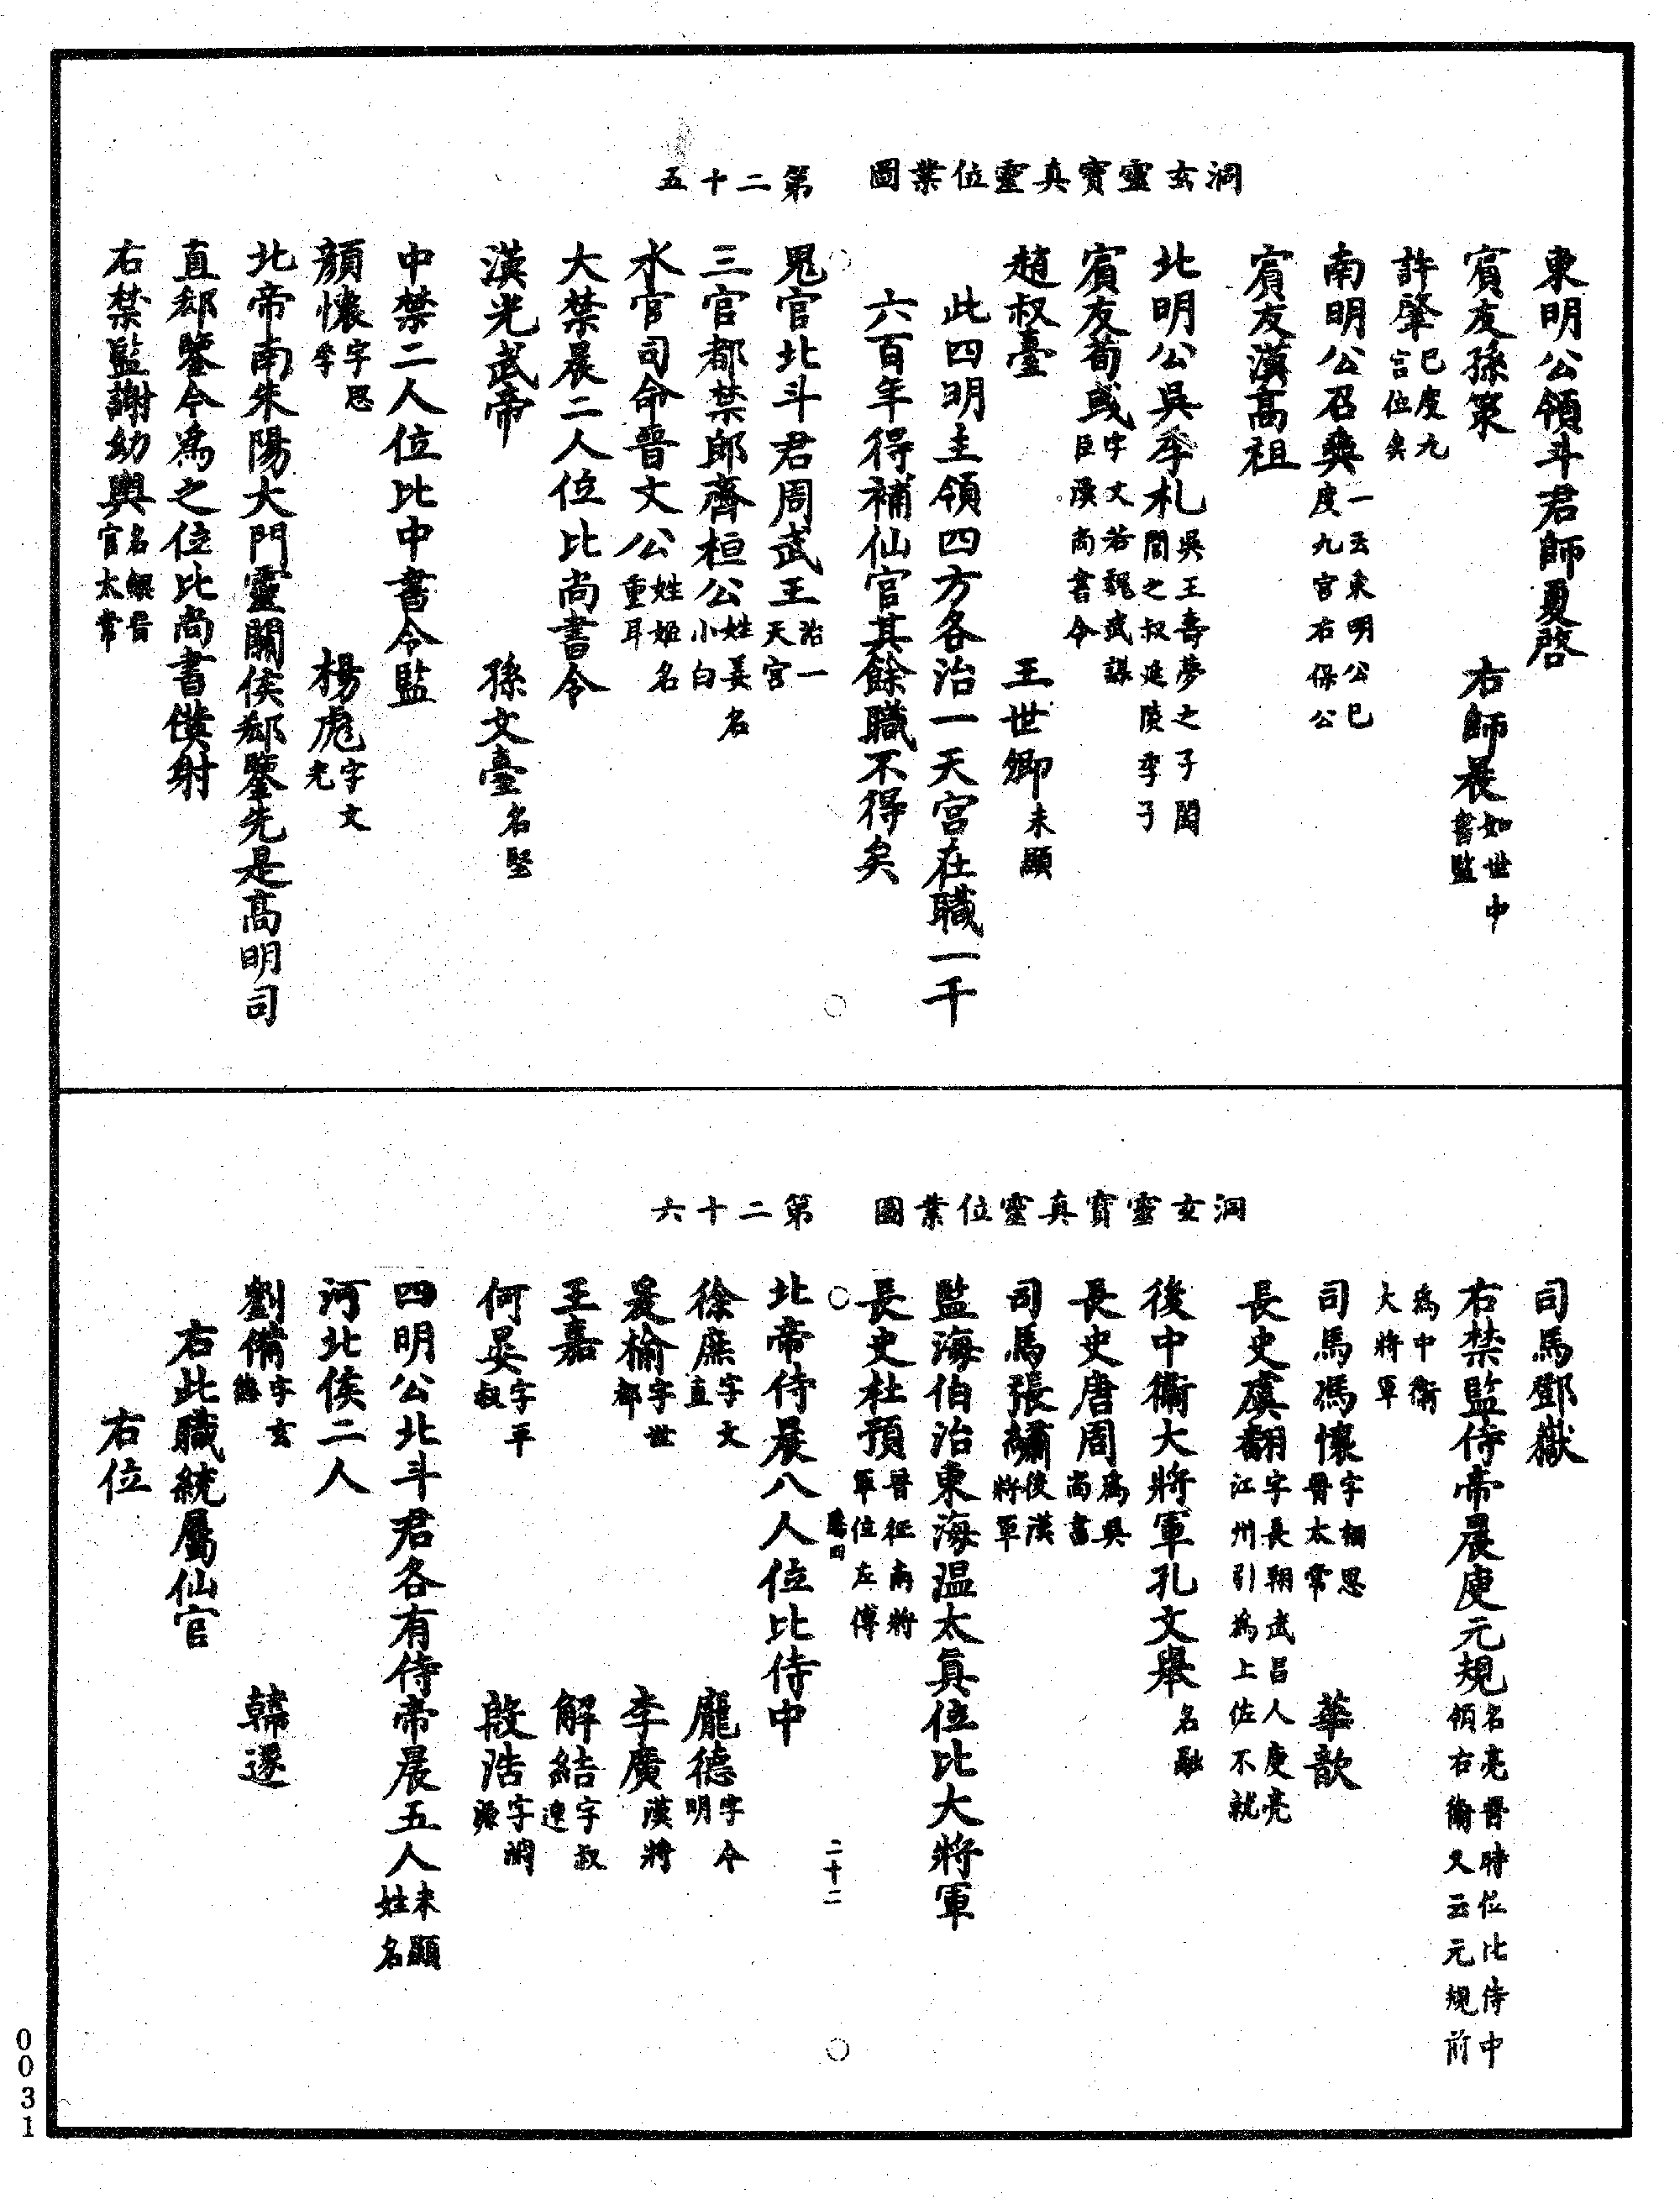 洞玄靈寶真靈位業圖　第二十五
東明公領斗君師夏啓
賓友孫策　右師晨如世中書監
許肇已度九宫位矣
南明公召奭一云東明公已度九宫右保公
賓友漢高祖
北明公吳季札吳王壽夢之子闔閭之叔延陵季子
賓友荀彧字文若魏武謀臣漢尚書令
趙叔臺　王世卿未顯
此四明主領四方各治一天宫在職一千
六百年得補仙官其餘職不得矣
鬼官北斗君周武王治一天宫
三官都禁郎齊桓公姓姜名小白
水官司命晉文公姓姬名重耳
大禁晨二人位比尚書令
漢光武帝　孫文臺名堅
中禁二人位比中書令監
顔懷字思季　楊彪字文先
北帝南朱陽大門靈關侯郗鑒先是高明司
直郗鑒令爲之位比尚書僕射
右禁監謝幼輿名鯤晉官太常
洞玄靈寶真靈位業圖　第二十六
司馬鄧嶽
右禁監侍帝晨庾元規名亮晉時位比侍中領右衛又云元規前
爲中衛大將軍
司馬馮懷字相思晉太常　華歆
長史虞翻字長翔武昌人庾亮江州引爲上佐不就
後中衛大將軍孔文舉名融
長史唐周爲吳尚書
司馬張繡後漢將軍
監海伯治東海温太真位比大將軍
長史杜預晉征南將軍位左傳
二十二
北帝侍晨八人位比侍中
徐庶字文直　龐德字令明
爰榆字世都　李廣漢將
王嘉　解結字叔連
何晏字平叔　殷浩字淵源
四明公北斗君各有侍帝晨五人未顯姓名
河北侯二人
劉備字玄德　韓遂
右此職統屬仙官
右位
0031